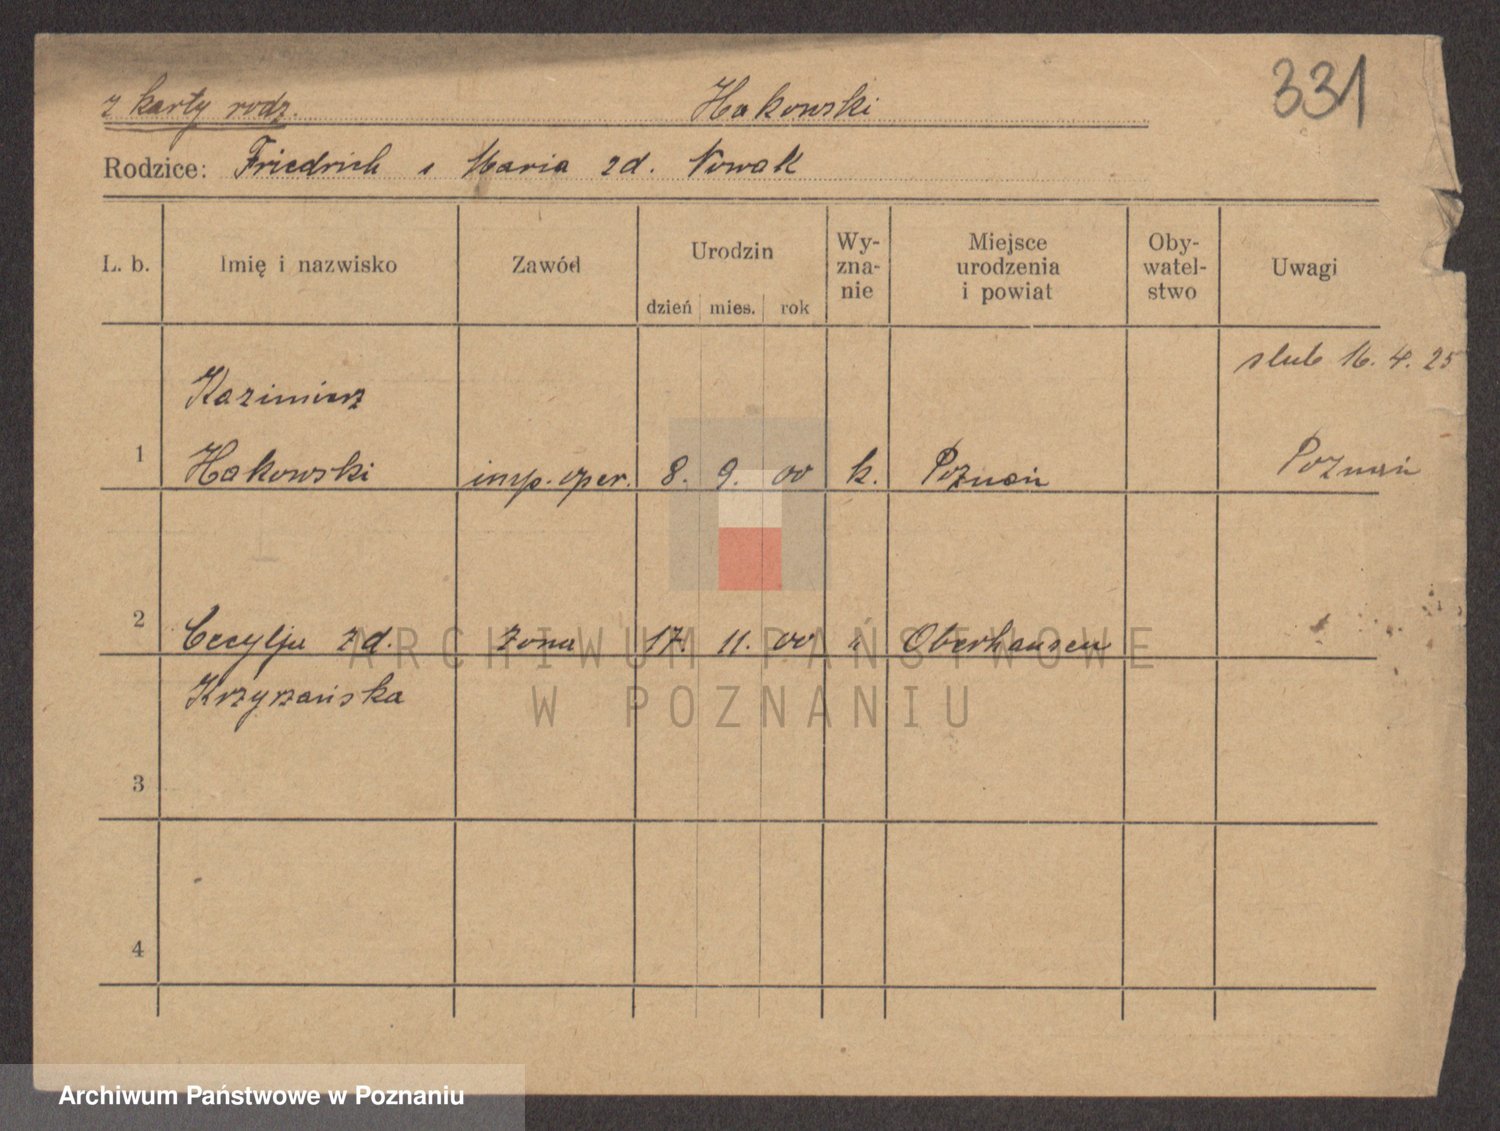 331
z karty rodz. Hakowski
Rodzice: Friedrich i Maria zd. Nowak
L. b. Imię i nazwisko Zawód Urodzin dzień mies. rok Wy-zna-nie Miejsce urodzenia i powiat Oby-watel-stwo Uwagi
ślub 16. 4. 25
Kazimierz
1 Hakowski insp. oper. 8. 9. 00 k. Poznań Poznań
2 Cecylja zd. żona 17. 11. 00 " Oberhausen
Krzyżańska
3
4
ARCHIWUM PAŃSTWOWE
W POZNANIU
Archiwum Państwowe w Poznaniu